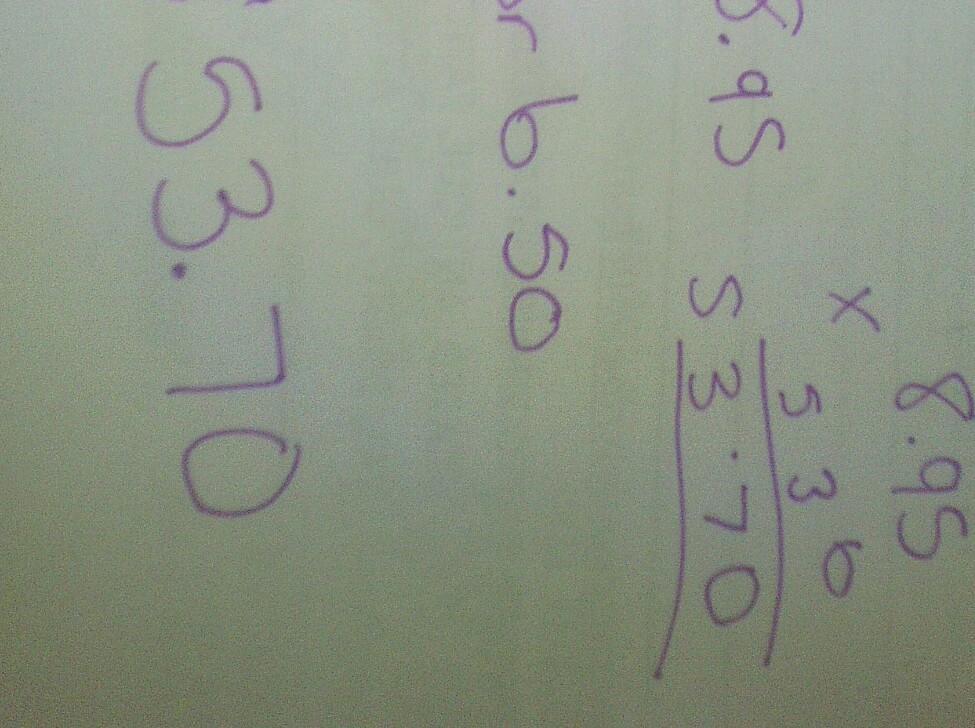 8.95
x 5 3 6
.95 53.70
6.50
53.70